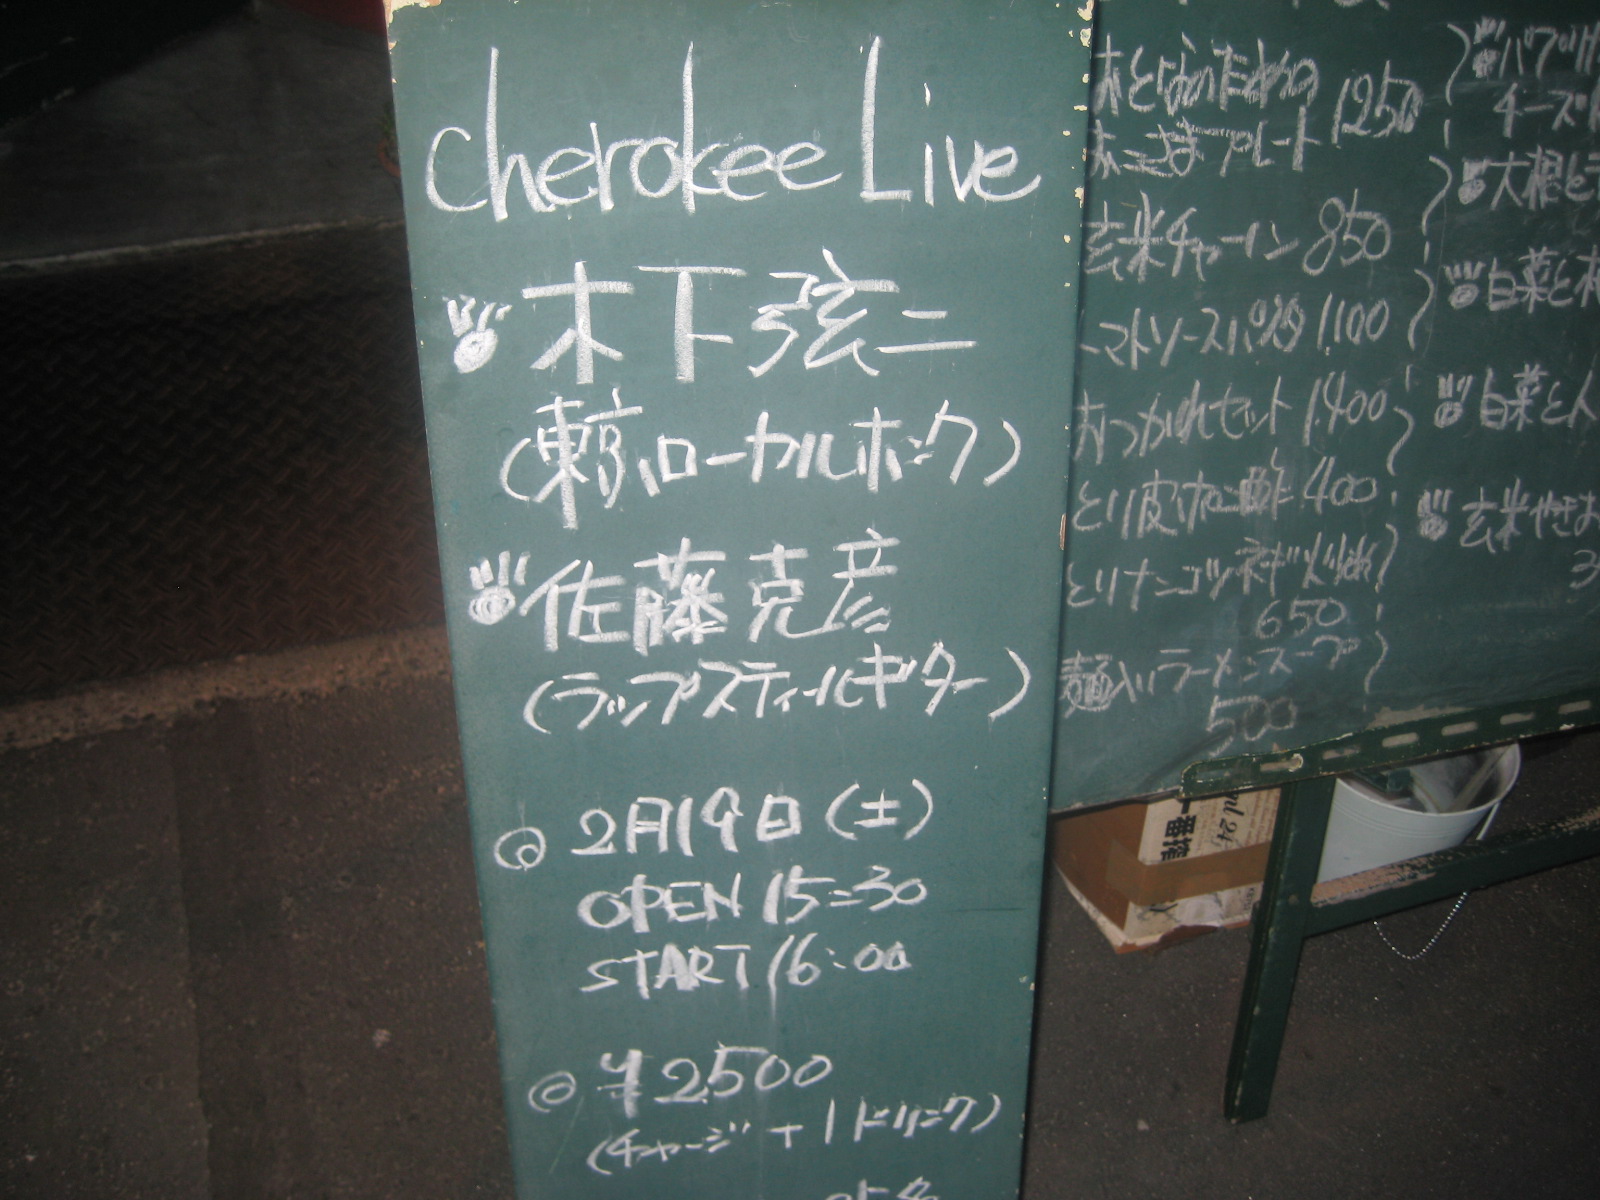 cherokee Live
木下弦二
(東京ローカルホンク)
佐藤克彦
(ラップスティールギター)
2月19日(土)
OPEN 15:30
START 16:00
¥2500
(チャージ+1ドリンク)
1250
プレート
玄米チャーハン 850
トマトソースパスタ 1100
おつかれセット 1400
とり皮ポン酢 400
とりナンコツネギ火炒め
650
麺入りラーメンスープ
500
チーズ
大根と
白菜と
白菜と
玄米やきお
一番搾